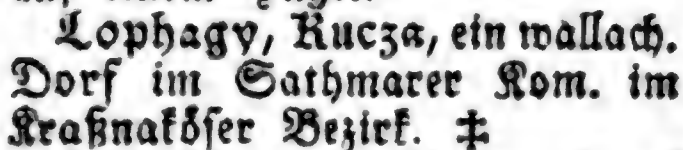 Lophagy, Kucza, ein wallach.
Dorf im Sathmarer Kom. im
Kraßnaköser Bezirk. ‡